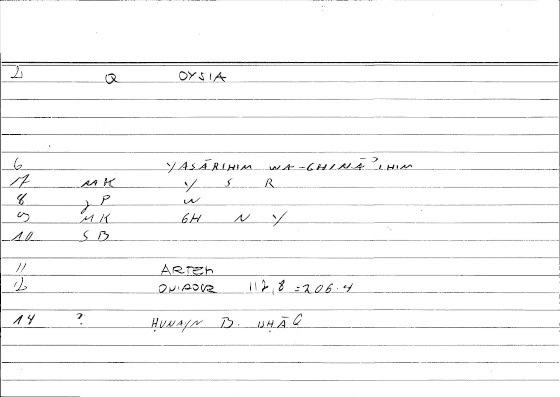 2 Q OYSIA
6 YASĀRIHIM WA-GHINĀʾIHIM
17 MK Y S R
8 P W
9 MK GH N Y
10 SB
11 ARTEM
12 112,8 = 206.4
14 ? ḤUNAYN B. ISḤĀQ